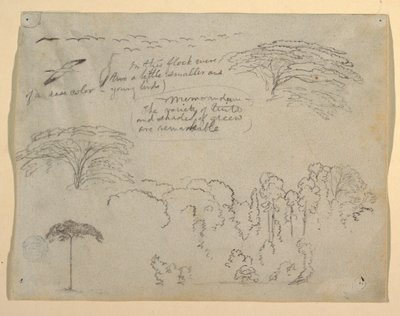 In this flock were
two a little smaller and
of a dun color young birds)
Memorandum
The variety of tints
and shades of green
are remarkable